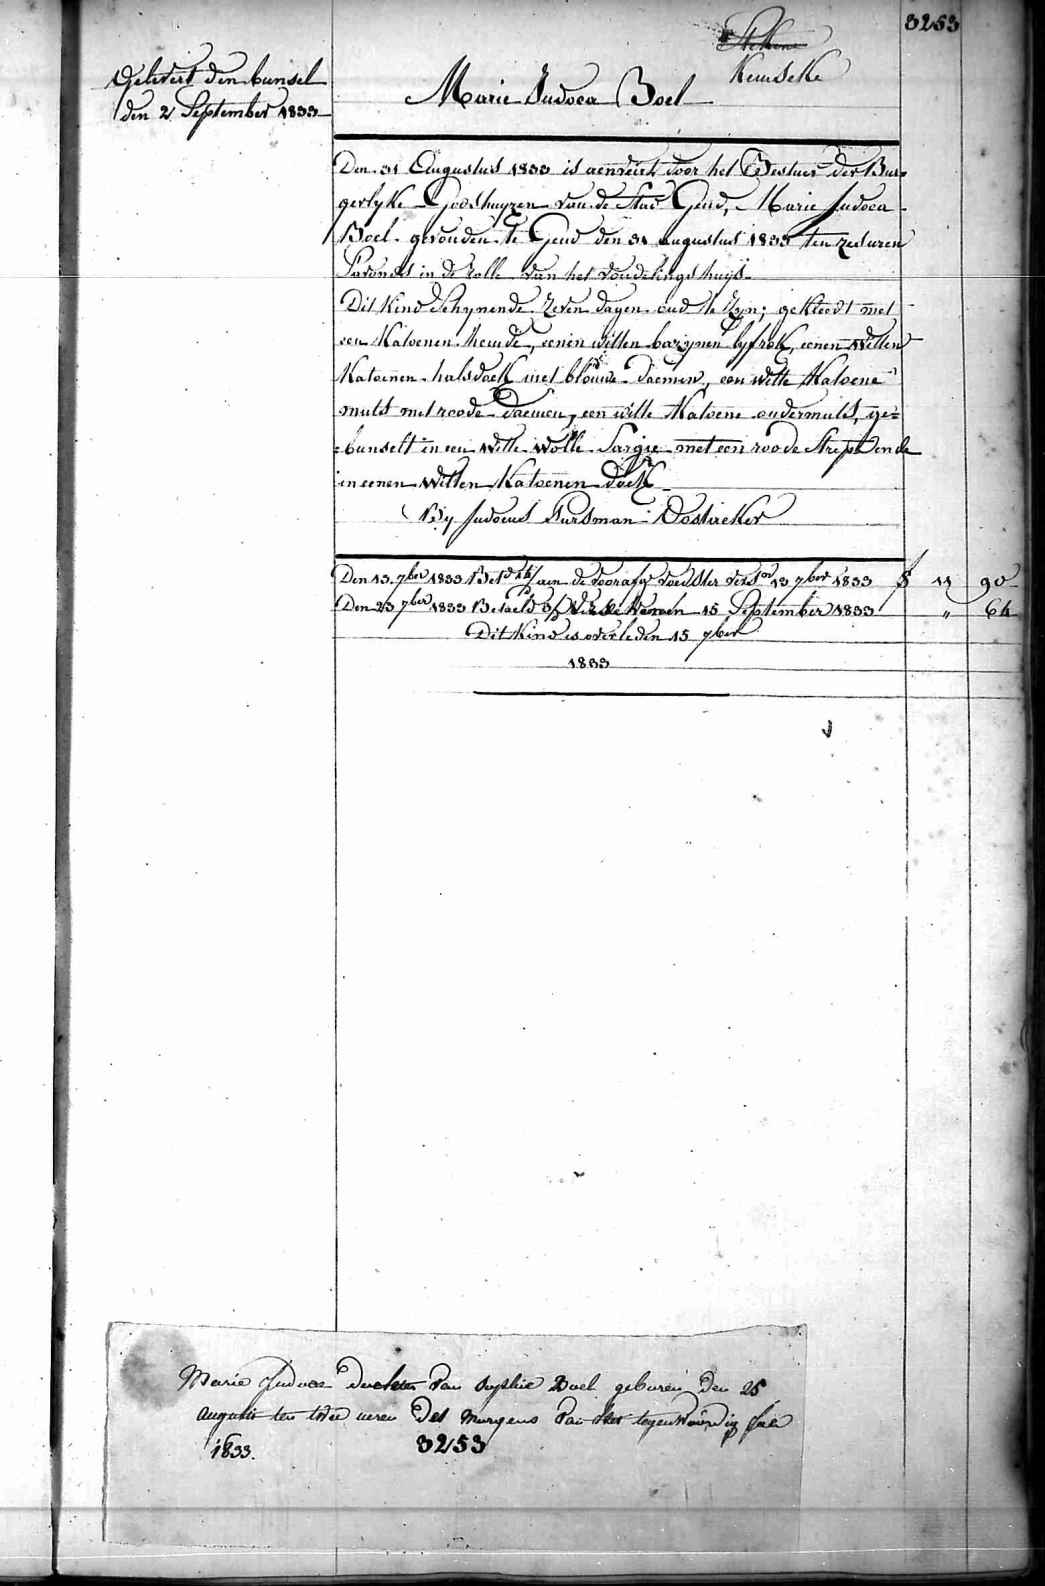 3253
Stekene
Kemseke
Gelevert den bunsel
den 2 September 1833
Marie Judoca Boel
Den 31 Augustus 1833 is aenveirt door het Bestuer der Bur=
gerlyke Godshuyzen van de Stad Gend, Marie Judoca
Boel gevonden te Gend den 31 augustus 1833 ten zes uren
S'avonds in de rolle van het vondelingshuijs
Dit Kind Schynende zeven dagen oud te zyn; gekleedt met
een Katoenen hemde, eenen witten bazynen lyfrok, eenen Witten
Katoenen halsdoek met blouwe daemen, een witte Katoene
muts met roode daemen, een witte Katoene ondermuts, ge=
=bunselt in een witte wolle Sargie met een roode Strept ende
in eenen Witten Katoenen doek
By Judocus Pursman Oostacker
Den 13 7ber 1833 aen de voorafg voedster 13 7ber 1833 f 11 90
Den 23 7ber 1833 Betaeld 15 September 1833 " 64
Dit Kind is overleden 15 7ber
1833
Marie Judoca dochter van Sophie Boel geboren den 25
augusti ten twee uren des morgens van het tegenwoordig jaer
1833.
3253